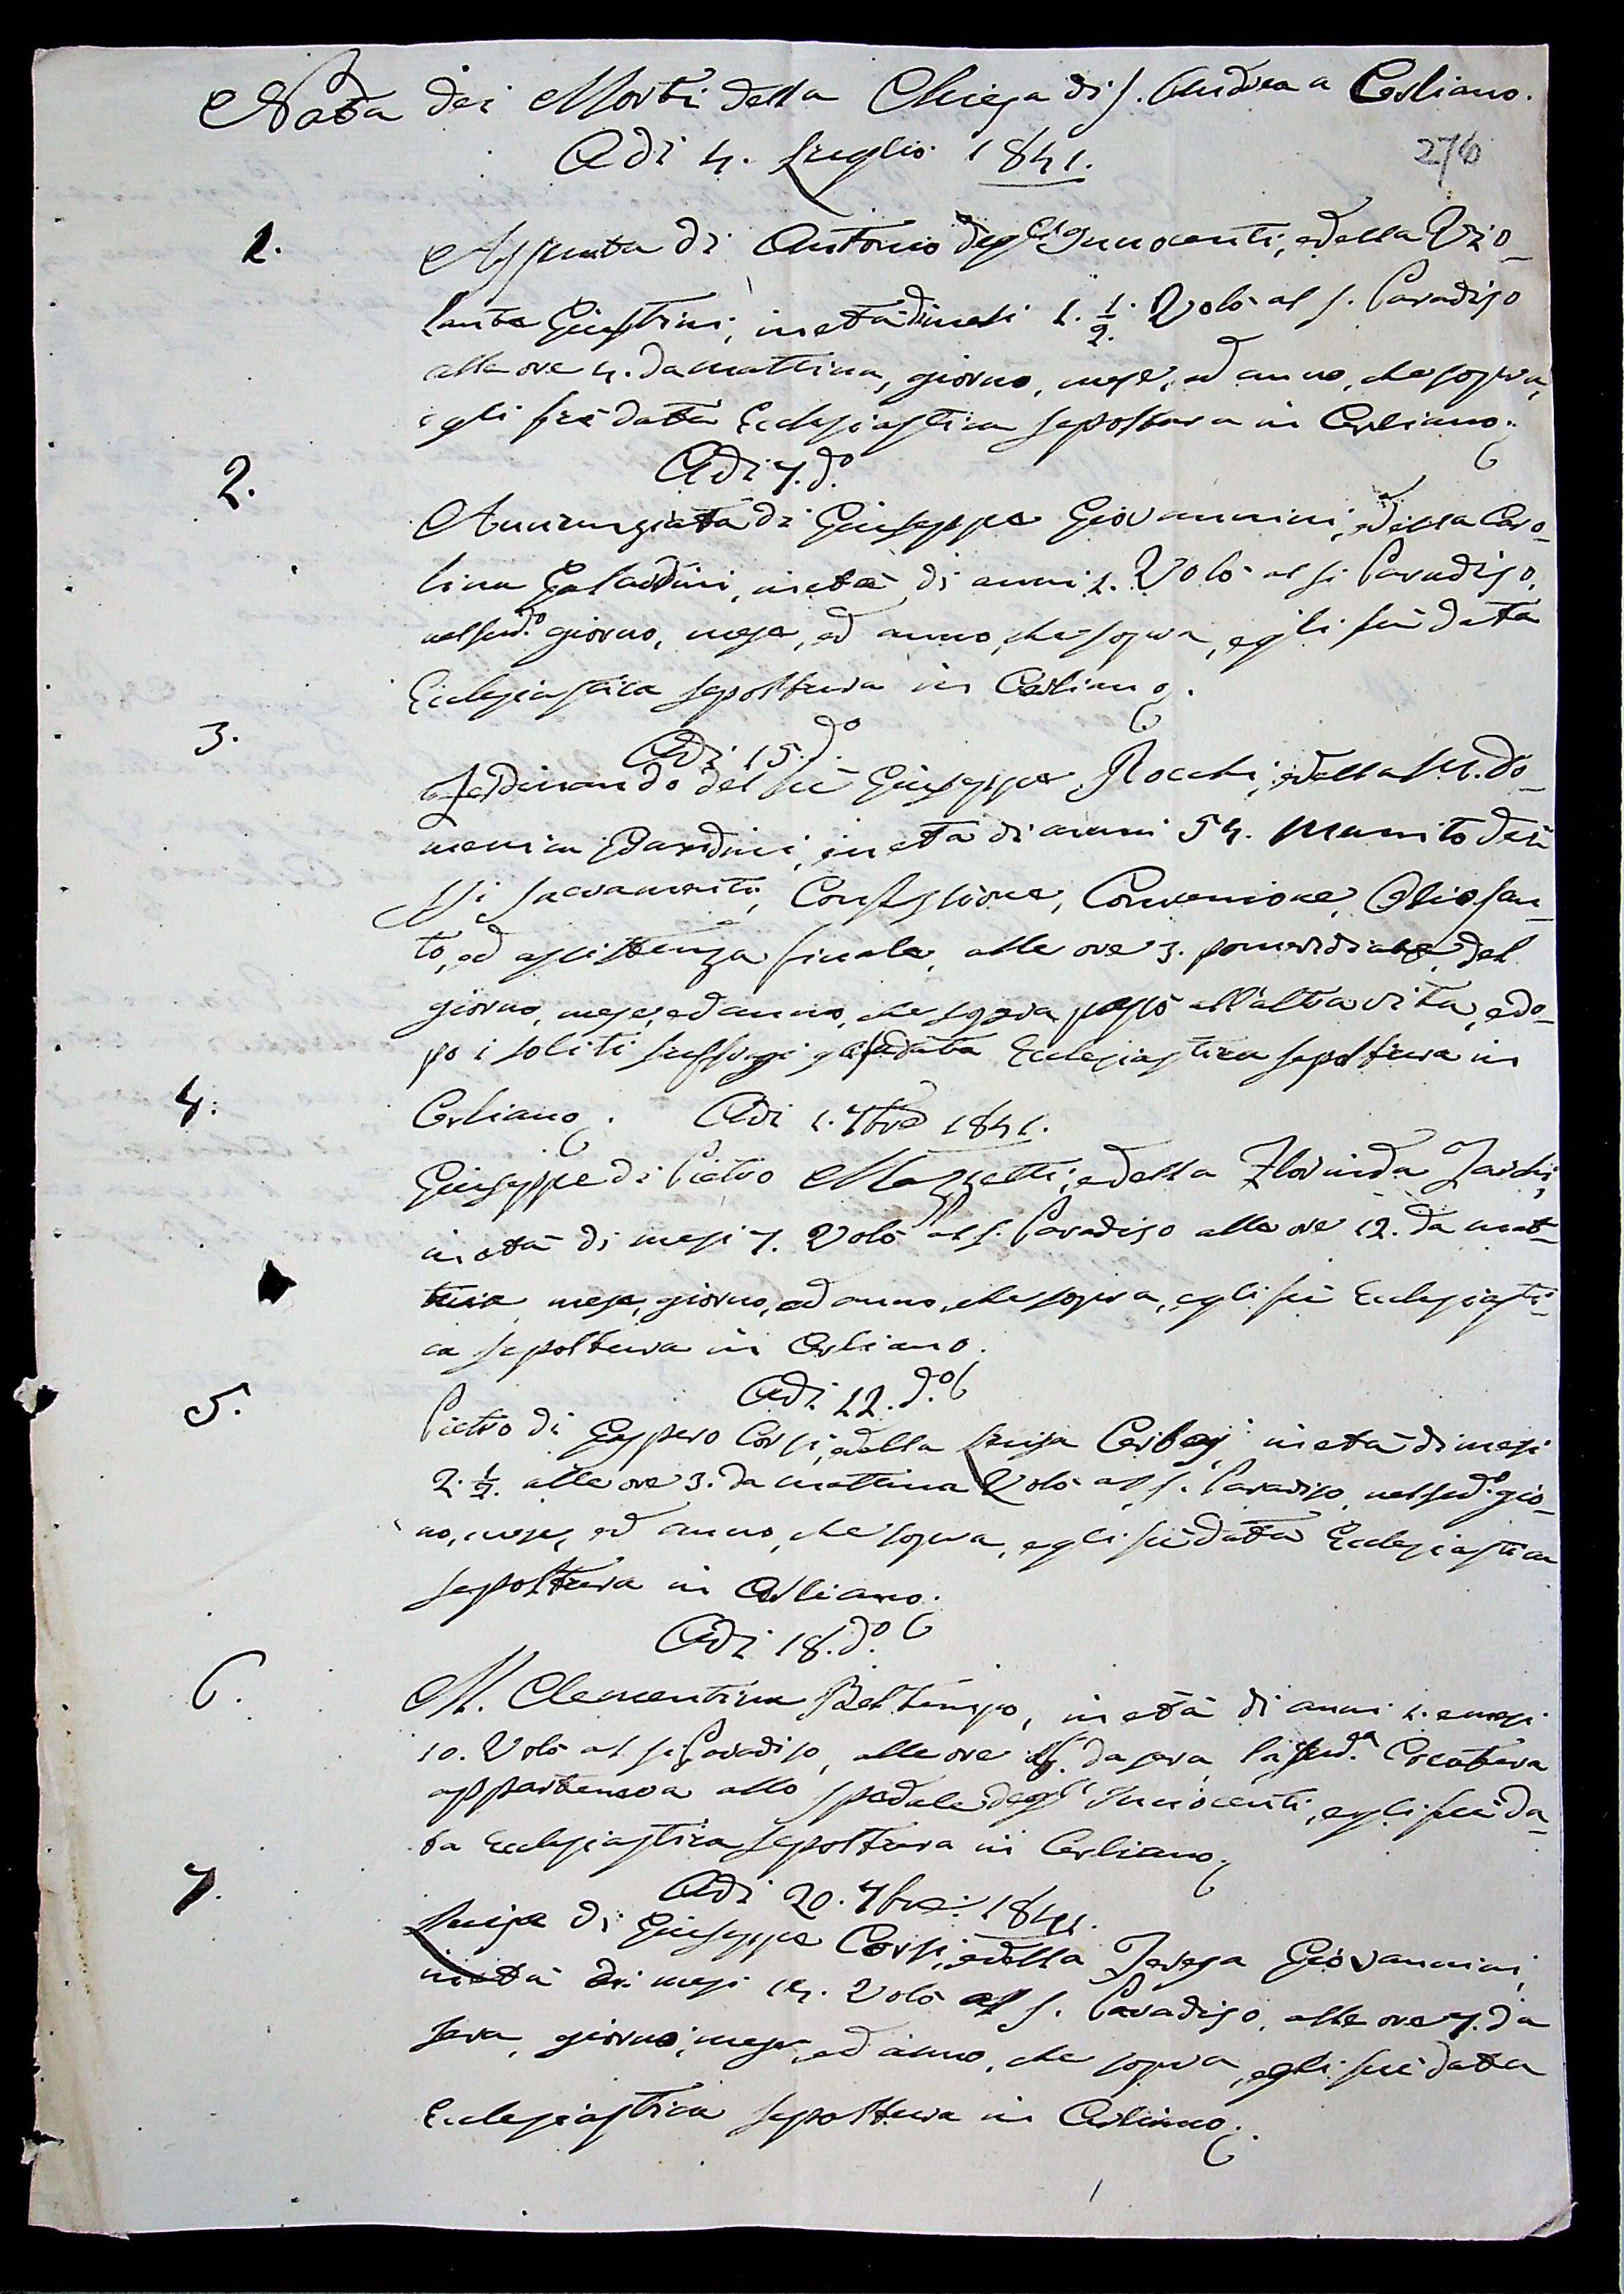 Nota dei Morti della Chiesa di S. Andrea a Cerliano.
Adi 4. Luglio 1841.
276
1.
Assunta di Antonio degl'Innocenti, e della Vio-
lante Giustini, in età di mesi 1. 1/2. Volò al S. Paradiso
alle ore 4. da mattina, giorno, mese, ed anno, che sopra,
e gli fù data Ecclesiastica sepoltura in Cerliano.
2.
Adi 7. d.o
Annunziata di Giuseppe Giovannini, e della Caro-
lina in età di anni 1. Volò al S. Paradiso,
nel sud.o giorno, mese, ed anno, che sopra, e gli fù data
Ecclesiastica sepoltura in Cerliano.
3.
Adi 15. d.o
Ferdinando del fù Giuseppe Rocchi, e della M. Do-
menica Bandini, in età di anni 54. Munito dei
SSi Sacramenti, Confessione, Comunione, Olio San-
to, ed assistenza finale, alle ore 3. pomeridiane, del
giorno, mese, ed anno, che sopra passò all'altra vita, e do-
po i soliti suffragi gli fù data Ecclesiastica sepoltura in
4.
Cerliano. Adi 1. 7bre 1841.
Giuseppe di Pietro Mazzetti, e della Florinda
in età di mesi 7. Volò al S. Paradiso alle ore 12. da mat-
tina mese, giorno, ed anno, che sopra, e gli fù Ecclesiasti-
ca sepoltura in Cerliano.
5.
Adi 12. d.o
Pietro di Gaspero Corsi, e della Luisa in età di mesi
2. 1/2. alle ore 3. da mattina Volò al S. Paradiso, nel sud.o gio-
no, mese, ed anno, che sopra, e gli fù data Ecclesiastica
sepoltura in Cerliano.
6.
Adi 18. d.o
M. Clementina Beltempo, in età di anni 1. e mesi
10. Volò al S. Paradiso, alle ore da sera, la sud.a Creatura
apparteneva allo spedale degl'Innocenti, e gli fù da-
ta Ecclesiastica sepoltura in Cerliano.
7.
Adi 20. 7bre. 1841.
Luisa di Giuseppe Corsi, e della Teresa Giovannini,
in età di mesi 14. Volò al S. Paradiso, alle ore 7. da
sera, giorno, mese, ed anno, che sopra, e gli fù data
Ecclesiastica sepoltura in Cerliano.